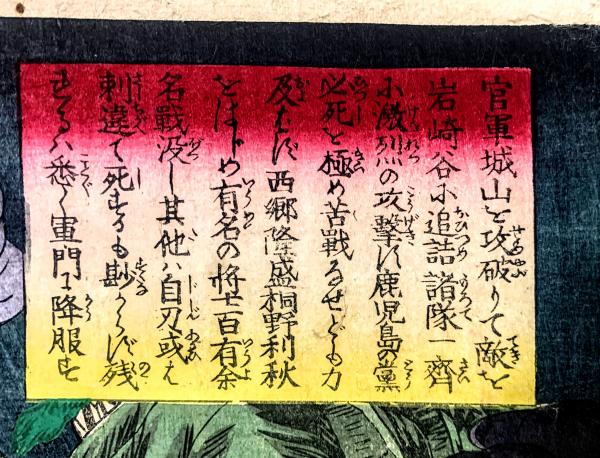 官軍城山を攻破りて敵を
岩崎谷に追詰諸隊一齊
に激烈の攻撃す鹿児島の黨
必死を極め苦戰なせども力
及ばず西郷隆盛桐野利秋
をはじめ有名の将士百有余
名戰没し其他ハ自刃或は
刺違て死するも尠からず残
れるハ悉く軍門に降服す